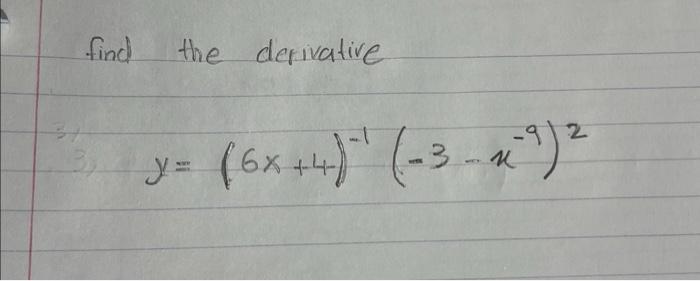 find the derivative
3) y = (6x+4)^-1 (-3 - x^-9)^2